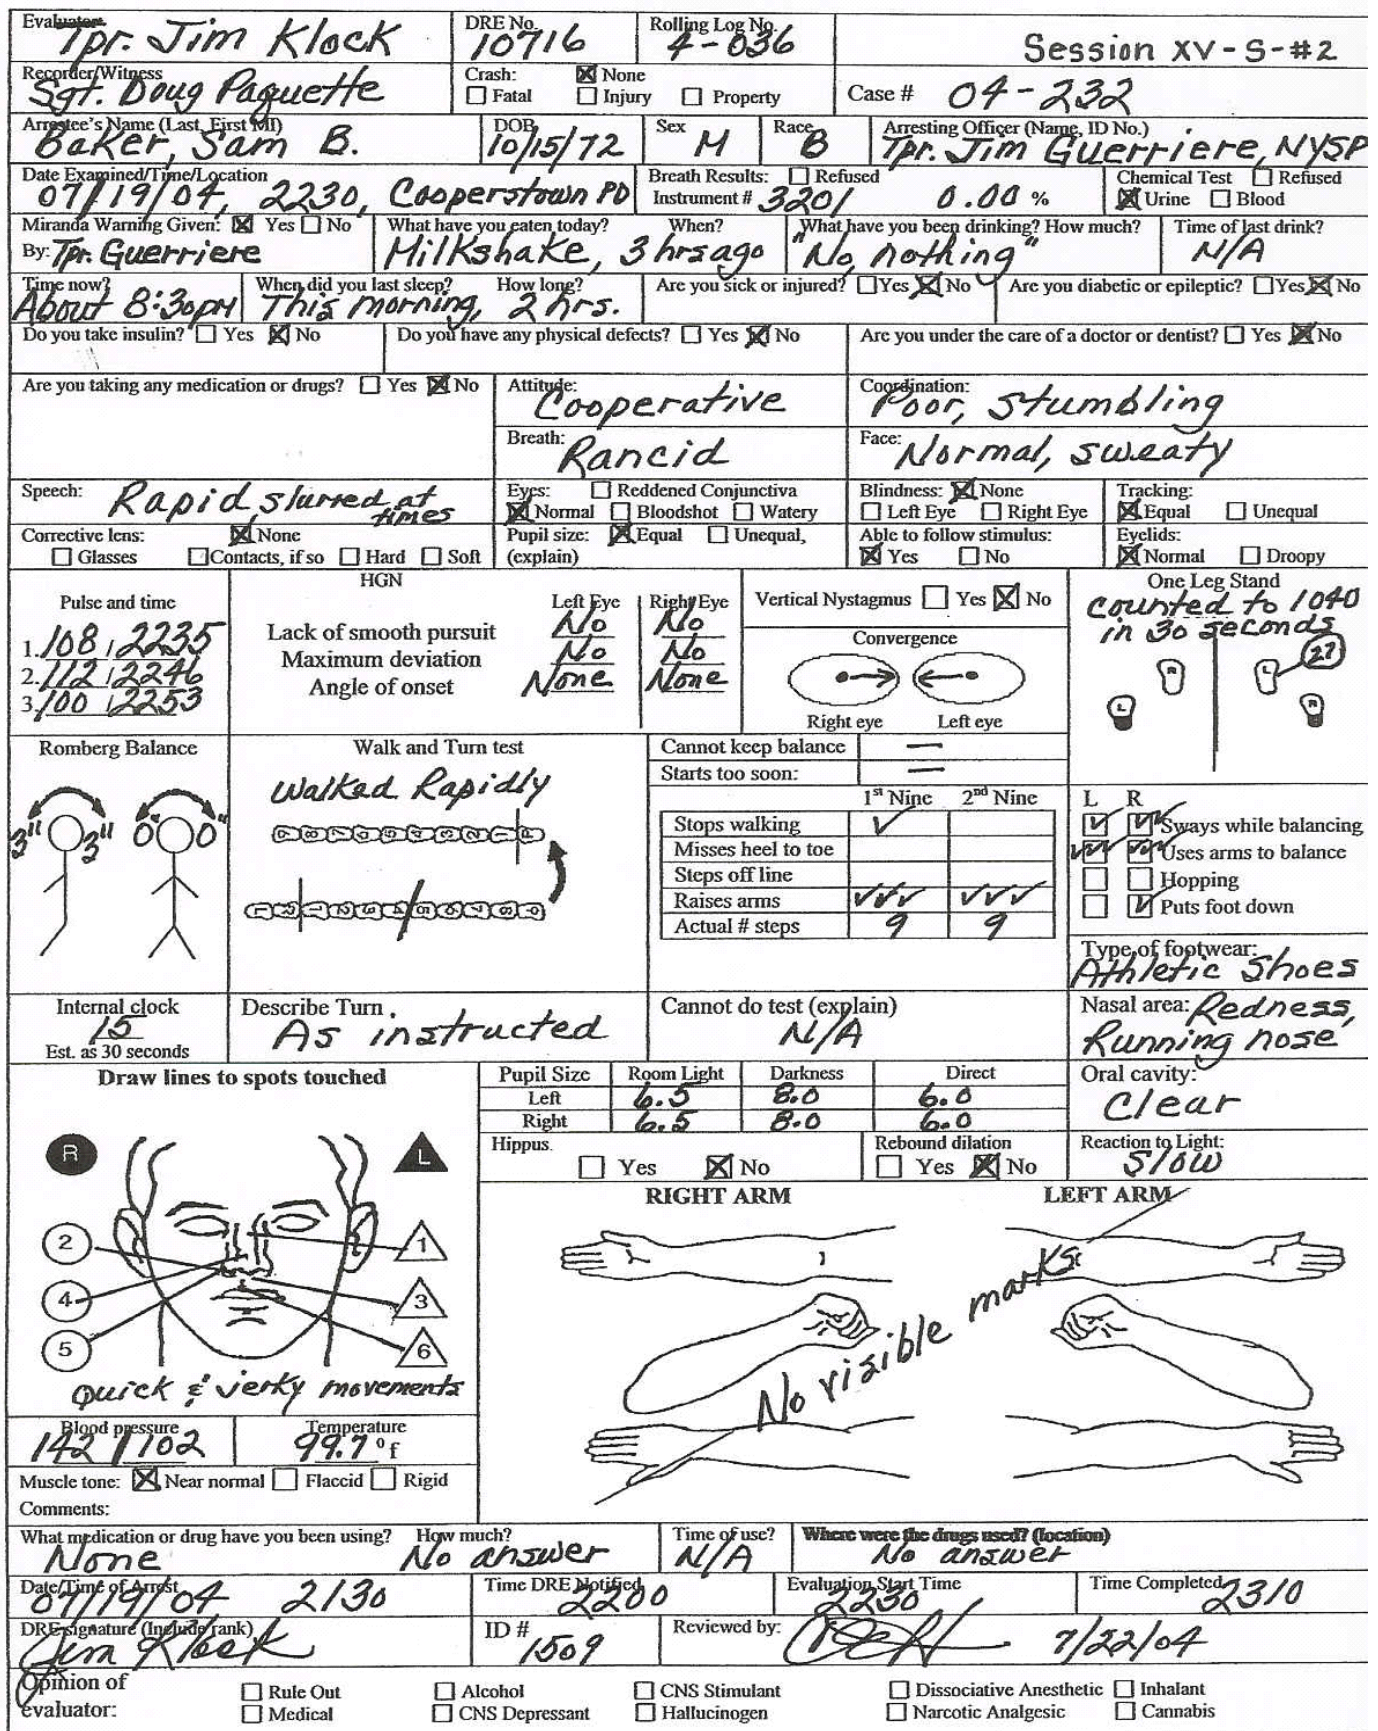 Evaluator Tpr. Jim Klock DRE No. 10716 Rolling Log No. 4-036 Session XV-S-#2
Recorder/Witness Sgt. Doug Paquette Crash: ☒ None ☐ Fatal ☐ Injury ☐ Property Case # 04-232
Arrestee's Name (Last, First MI) Baker, Sam B. DOB 10/15/72 Sex M Race B Arresting Officer (Name, ID No.) Tpr. Jim Guerriere, NYSP
Date Examined/Time/Location 07/19/04, 2230, Cooperstown PD Breath Results: ☐ Refused Instrument # 3201 0.00 % Chemical Test ☐ Refused ☒ Urine ☐ Blood
Miranda Warning Given: ☒ Yes ☐ No By: Tpr. Guerriere What have you eaten today? When? Milkshake, 3 hrs ago What have you been drinking? How much? "No, nothing" Time of last drink? N/A
Time now? About 8:30pm When did you last sleep? How long? This morning, 2 hrs. Are you sick or injured? ☐ Yes ☒ No Are you diabetic or epileptic? ☐ Yes ☒ No
Do you take insulin? ☐ Yes ☒ No Do you have any physical defects? ☐ Yes ☒ No Are you under the care of a doctor or dentist? ☐ Yes ☒ No
Are you taking any medication or drugs? ☐ Yes ☒ No Attitude: Cooperative Coordination: Poor, stumbling
Breath: Rancid Face: Normal, sweaty
Speech: Rapid, slurred at times Eyes: ☐ Reddened Conjunctiva ☒ Normal ☐ Bloodshot ☐ Watery Blindness: ☒ None ☐ Left Eye ☐ Right Eye Tracking: ☒ Equal ☐ Unequal
Corrective lens: ☒ None ☐ Glasses ☐ Contacts, if so ☐ Hard ☐ Soft Pupil size: ☒ Equal ☐ Unequal, (explain) Able to follow stimulus: ☒ Yes ☐ No Eyelids: ☒ Normal ☐ Droopy
Pulse and time
1. 108 / 2235
2. 112 / 2246
3. 100 / 2253
HGN Left Eye Right Eye
Lack of smooth pursuit No No
Maximum deviation No No
Angle of onset None None
Vertical Nystagmus ☐ Yes ☒ No
Convergence
Right eye Left eye
One Leg Stand
counted to 1040
in 30 seconds
R L 27
L R
Romberg Balance
3" 3" 0" 0"
Walk and Turn test
Walked Rapidly
Cannot keep balance —
Starts too soon: —
1st Nine 2nd Nine
Stops walking ✓
Misses heel to toe
Steps off line
Raises arms ✓✓✓ ✓✓✓
Actual # steps 9 9
L R
Sways while balancing
Uses arms to balance
Hopping
Puts foot down
Type of footwear: Athletic Shoes
Internal clock 15 Est. as 30 seconds
Describe Turn As instructed
Cannot do test (explain) N/A
Nasal area: Redness, Running nose
Draw lines to spots touched
R L
2 1
4 3
5 6
Quick & jerky movements
Pupil Size Room Light Darkness Direct
Left 6.5 8.0 6.0
Right 6.5 8.0 6.0
Oral cavity: Clear
Hippus. ☐ Yes ☒ No Rebound dilation ☐ Yes ☒ No Reaction to Light: Slow
RIGHT ARM LEFT ARM
No visible marks
Blood pressure 142 / 102 Temperature 99.7 °f
Muscle tone: ☒ Near normal ☐ Flaccid ☐ Rigid
Comments:
What medication or drug have you been using? How much? None No answer Time of use? N/A Where were the drugs used? (location) No answer
Date/Time of Arrest 07/19/04 2130 Time DRE Notified 2200 Evaluation Start Time 2230 Time Completed 2310
DRE signature (Include rank) Jim Klock ID # 1509 Reviewed by: 7/22/04
Opinion of evaluator: ☐ Rule Out ☐ Alcohol ☐ CNS Stimulant ☐ Dissociative Anesthetic ☐ Inhalant
☐ Medical ☐ CNS Depressant ☐ Hallucinogen ☐ Narcotic Analgesic ☐ Cannabis